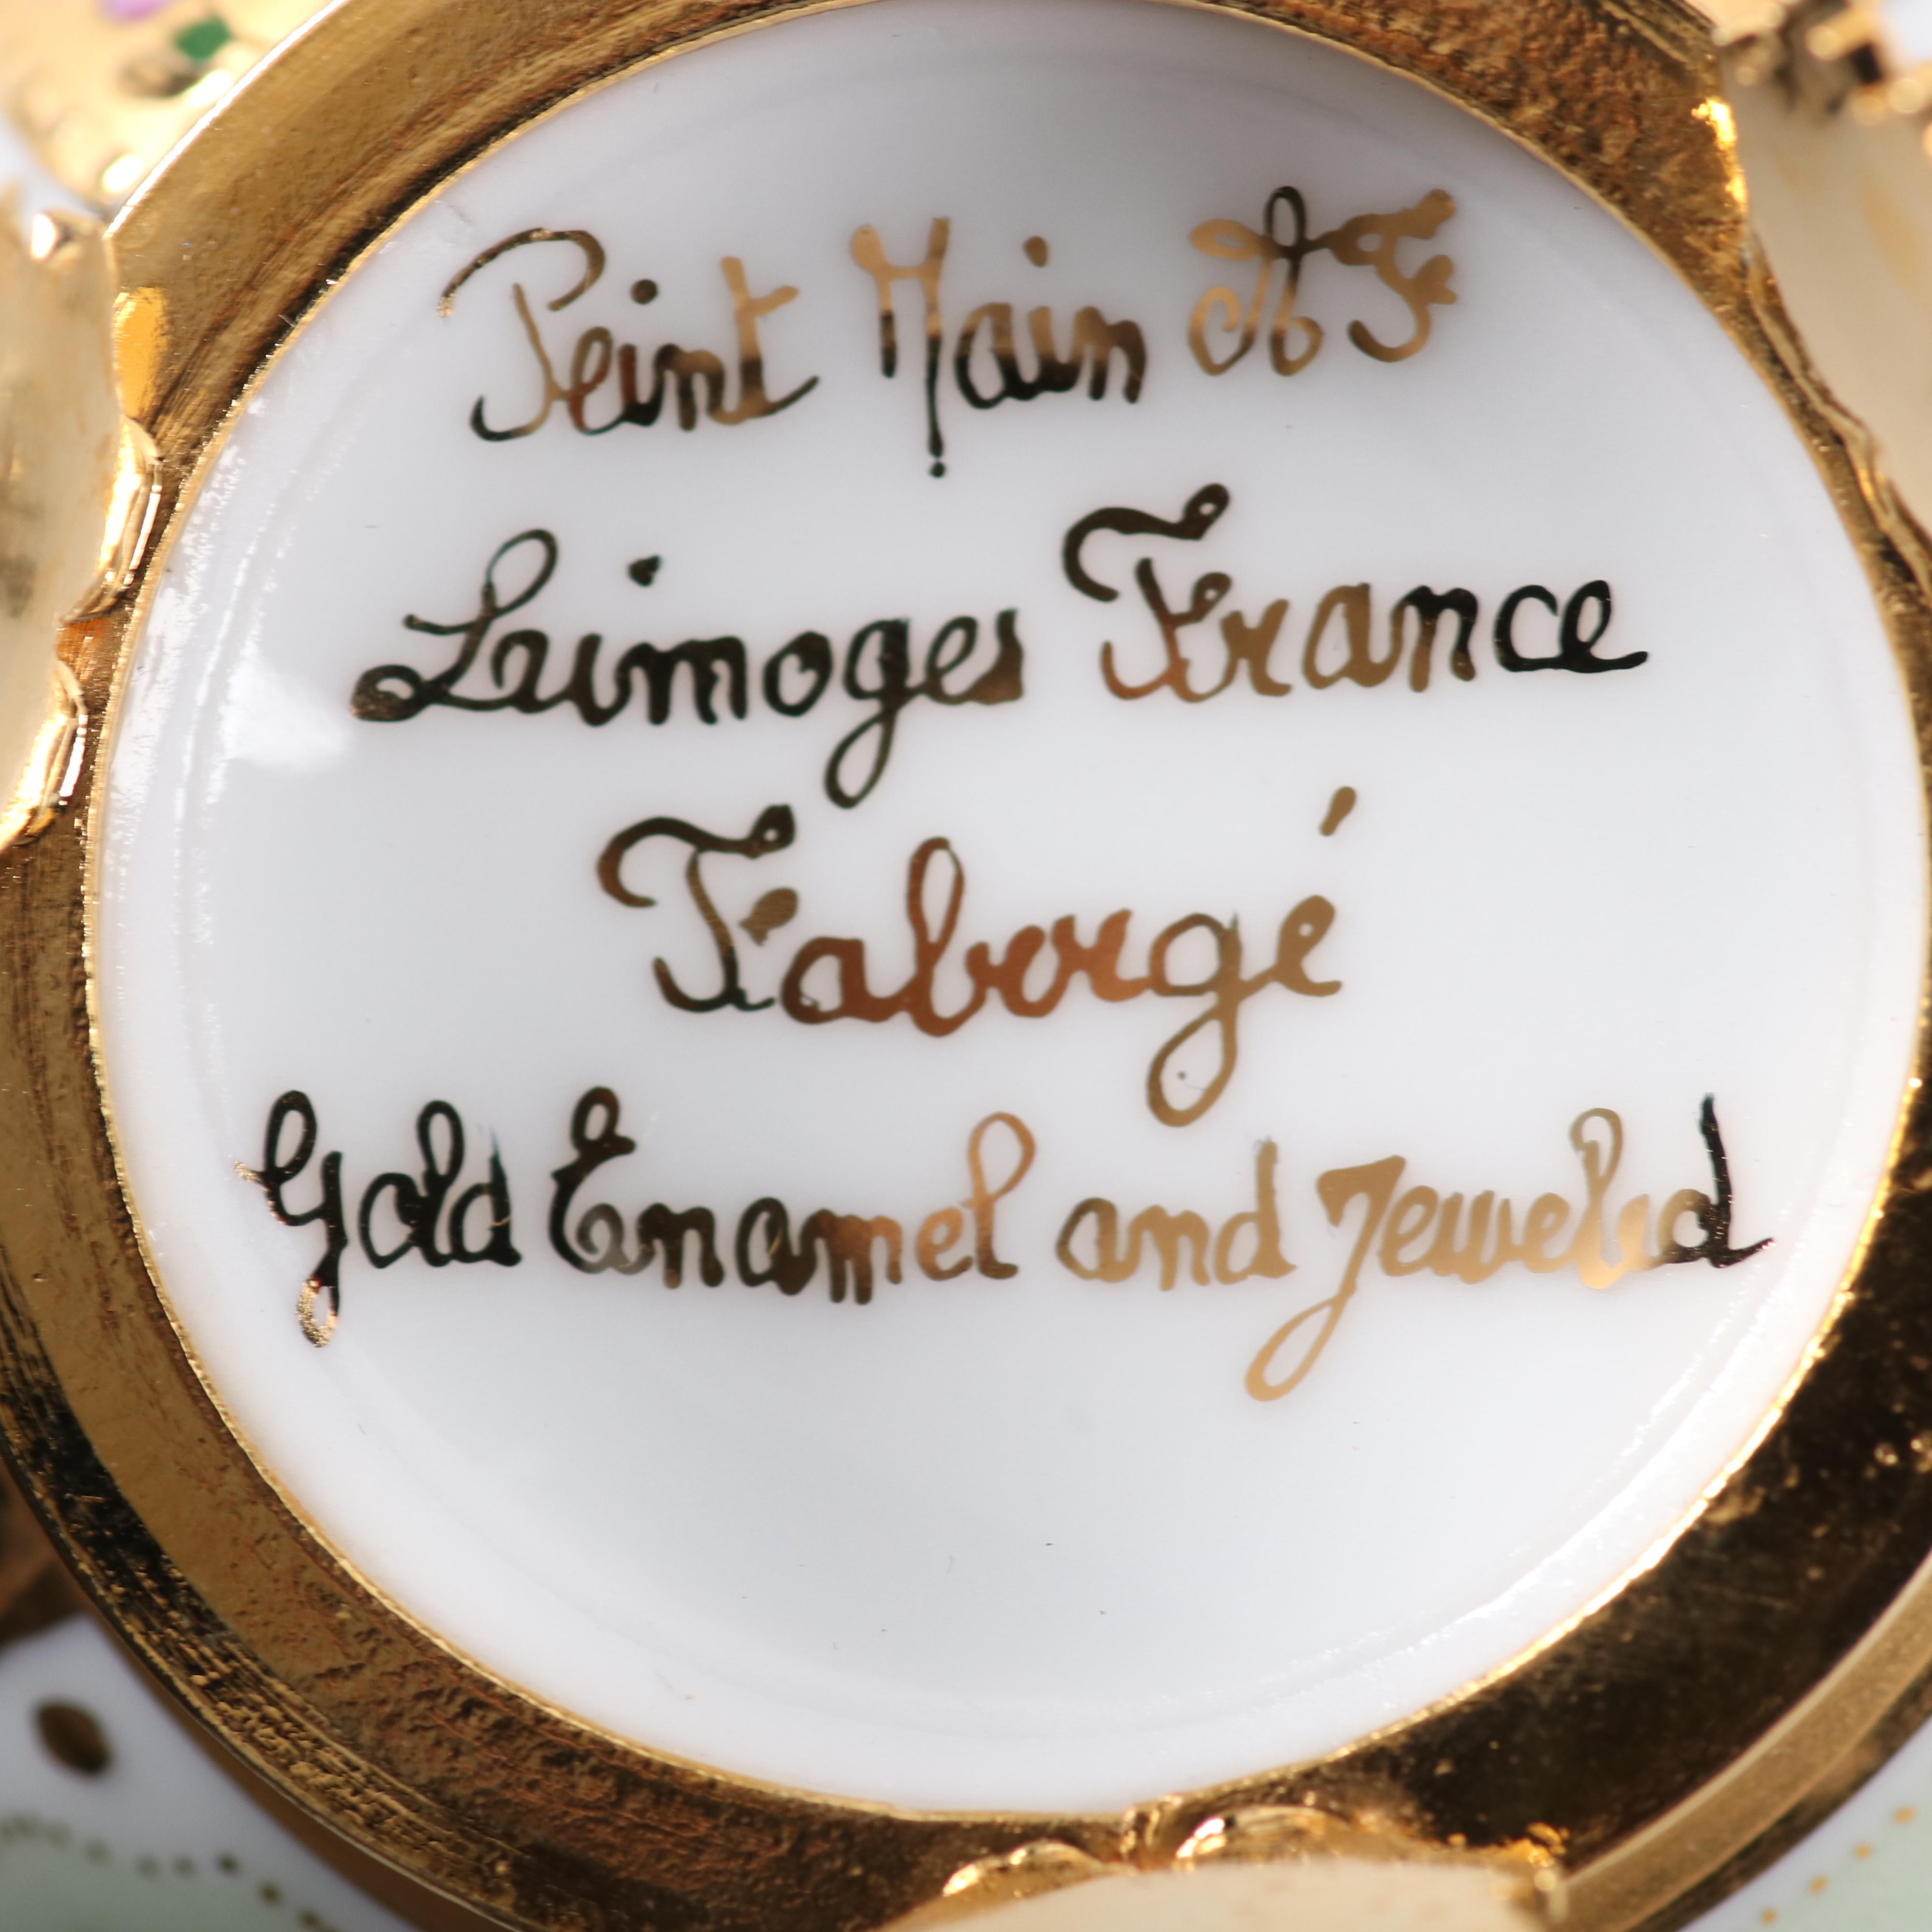 Peint Main AF
Limoges France
Fabergé
Gold Enamel and Jeweled